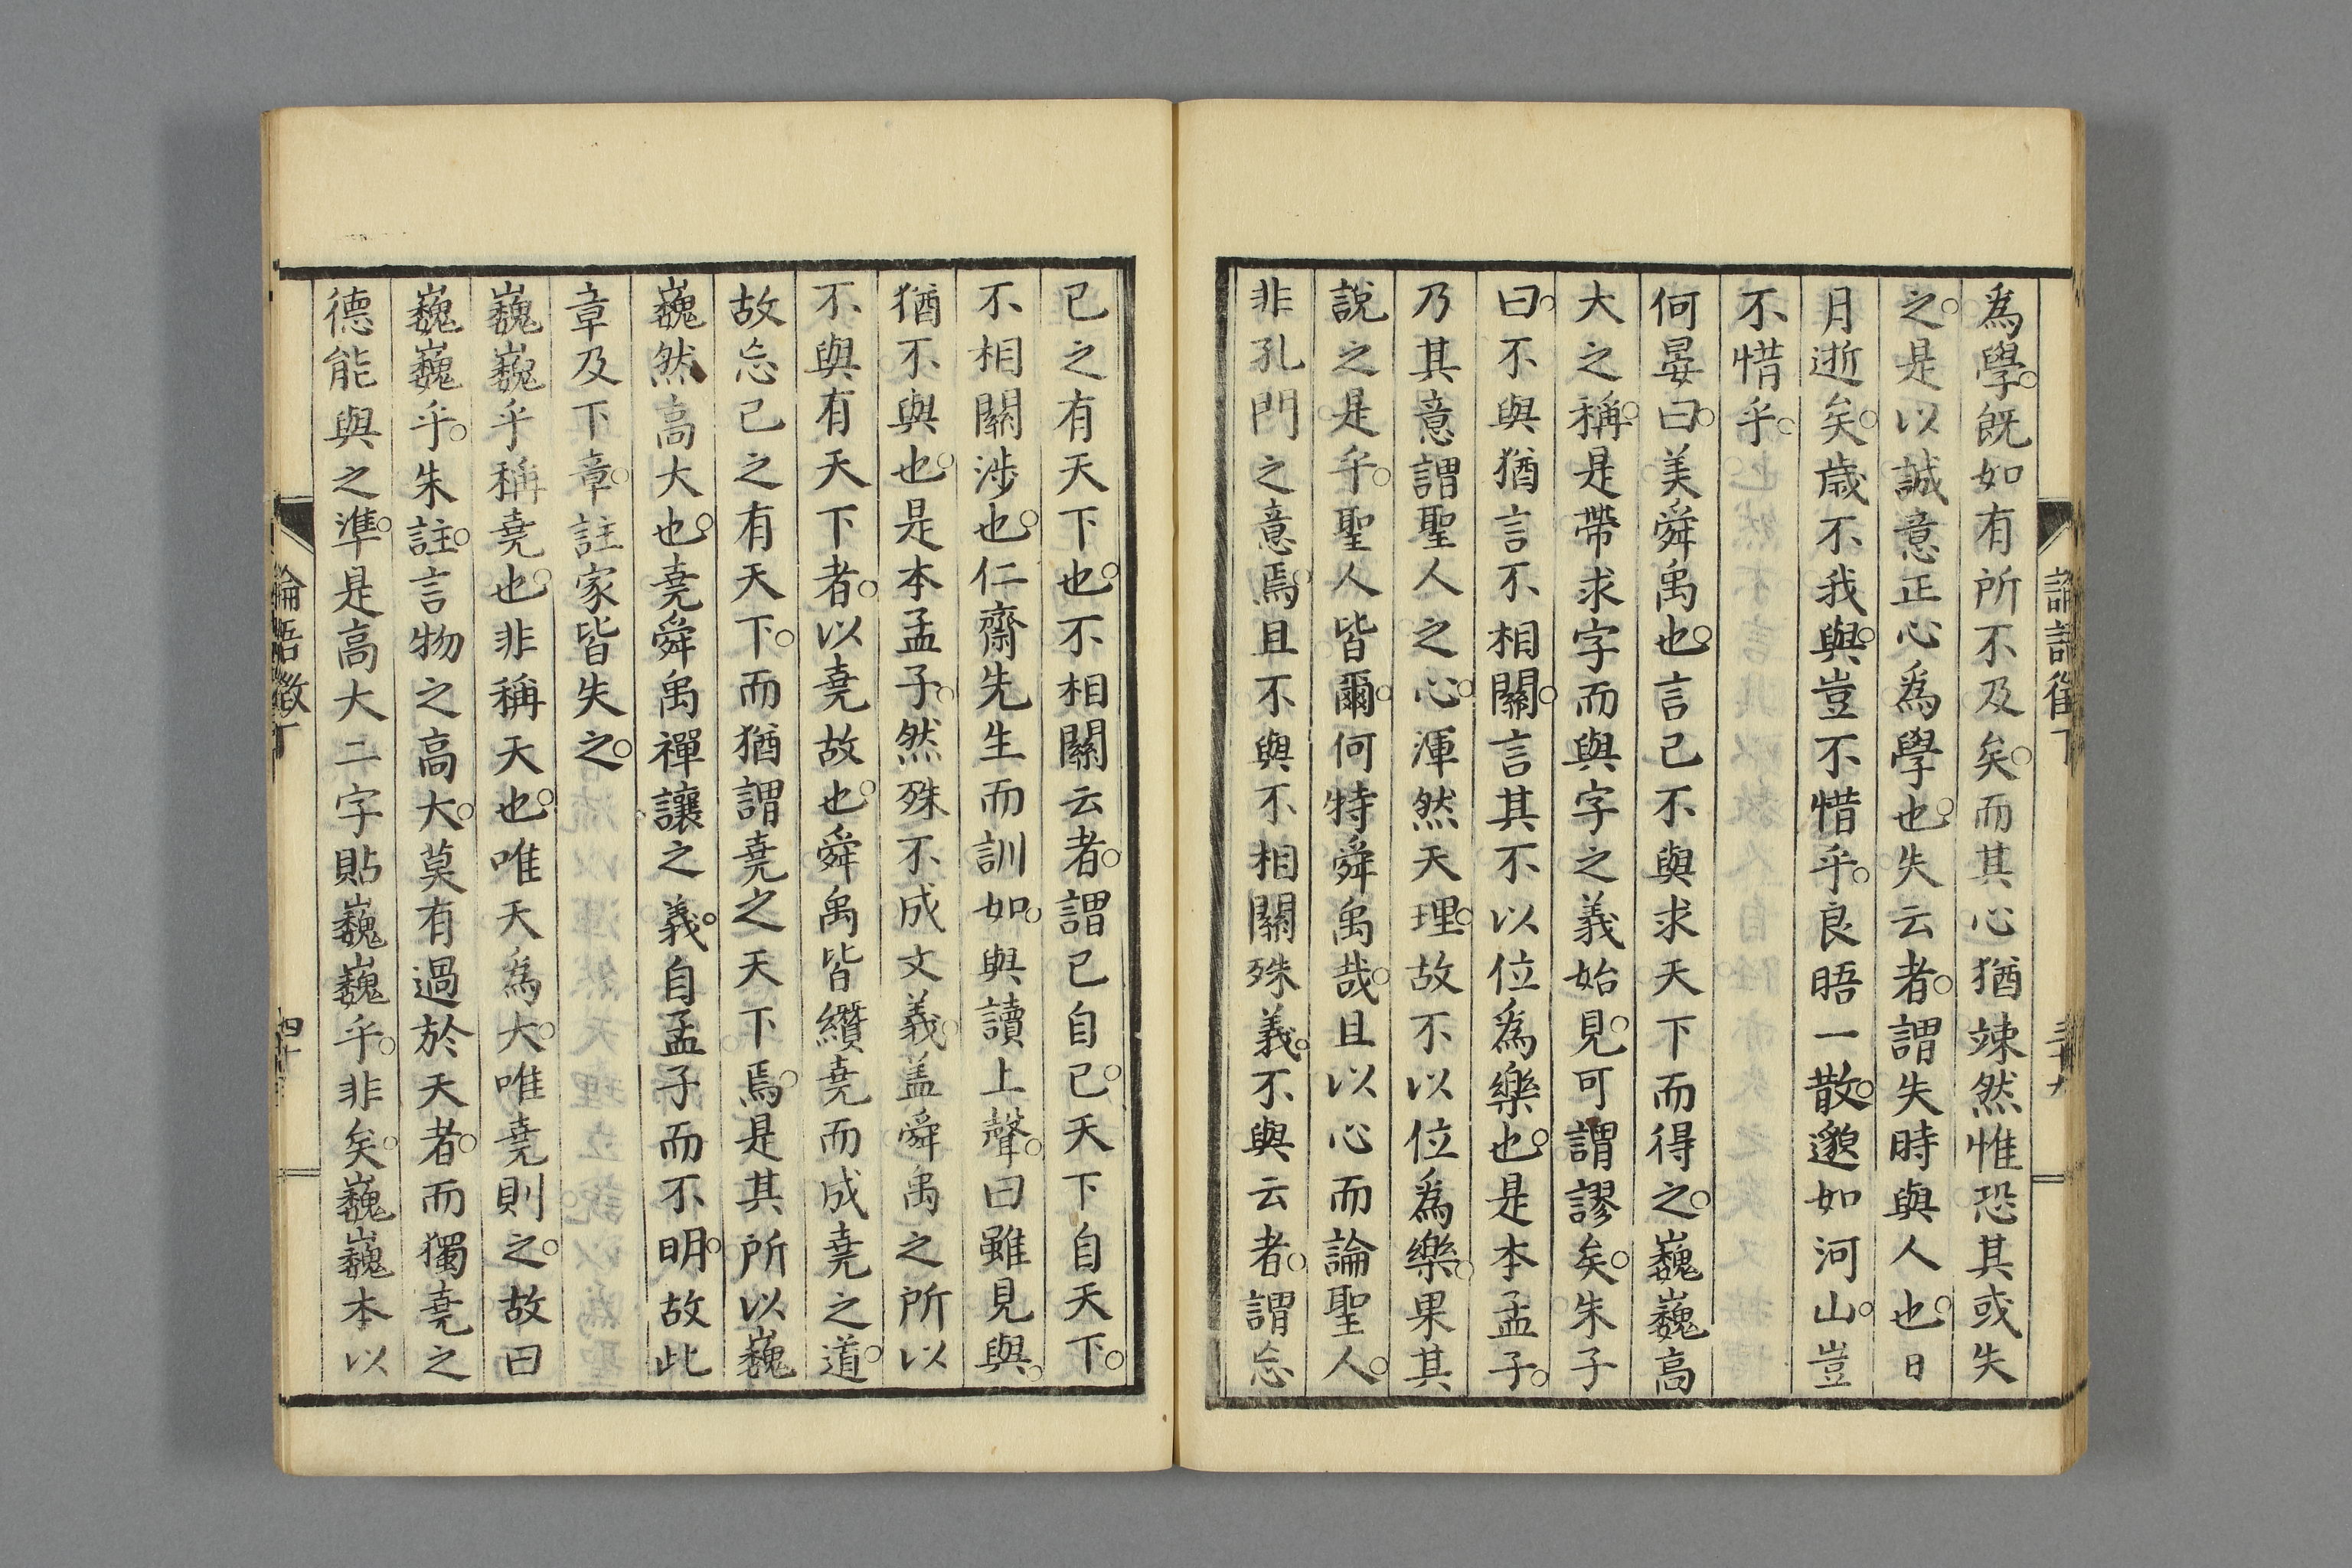 爲學。既如有所不及矣。而其心猶竦然惟恐其或失
之。是以誠意正心爲學也。失云者。謂失時與人也。日
月逝矣。歲不我與。豈不惜乎。良晤一散。邈如河山。豈
不惜乎。
何晏曰。美舜禹也。言己不與求天下而得之。巍巍高
大之稱。是帶求字而與字之義始見。可謂謬矣。朱子
曰。不與猶言不相關。言其不以位爲樂也。是本孟子。
乃其意謂聖人之心。渾然天理。故不以位爲樂。果其
說之是乎。聖人皆爾。何特舜禹哉。且以心而論聖人。
非孔門之意焉。且不與不相關殊義。不與云者。謂忘
己之有天下也。不相關云者。謂己自己。天下自天下。
不相關涉也。仁齋先生而訓如。與讀上聲。曰雖見與。
猶不與也。是本孟子。然殊不成文義。盖舜禹之所以
不與有天下者。以堯故也。舜禹皆纘堯而成堯之道。
故忘己之有天下。而猶謂堯之天下焉。是其所以巍
巍然高大也。堯舜禹禪讓之義。自孟子而不明。故此
章及下章。註家皆失之。
巍巍乎稱堯也。非稱天也。唯天爲大。唯堯則之。故曰
巍巍乎。朱註。言物之高大。莫有過於天者。而獨堯之
德能與之準。是高大二字貼巍巍乎。非矣。巍巍本以
論語徵丁